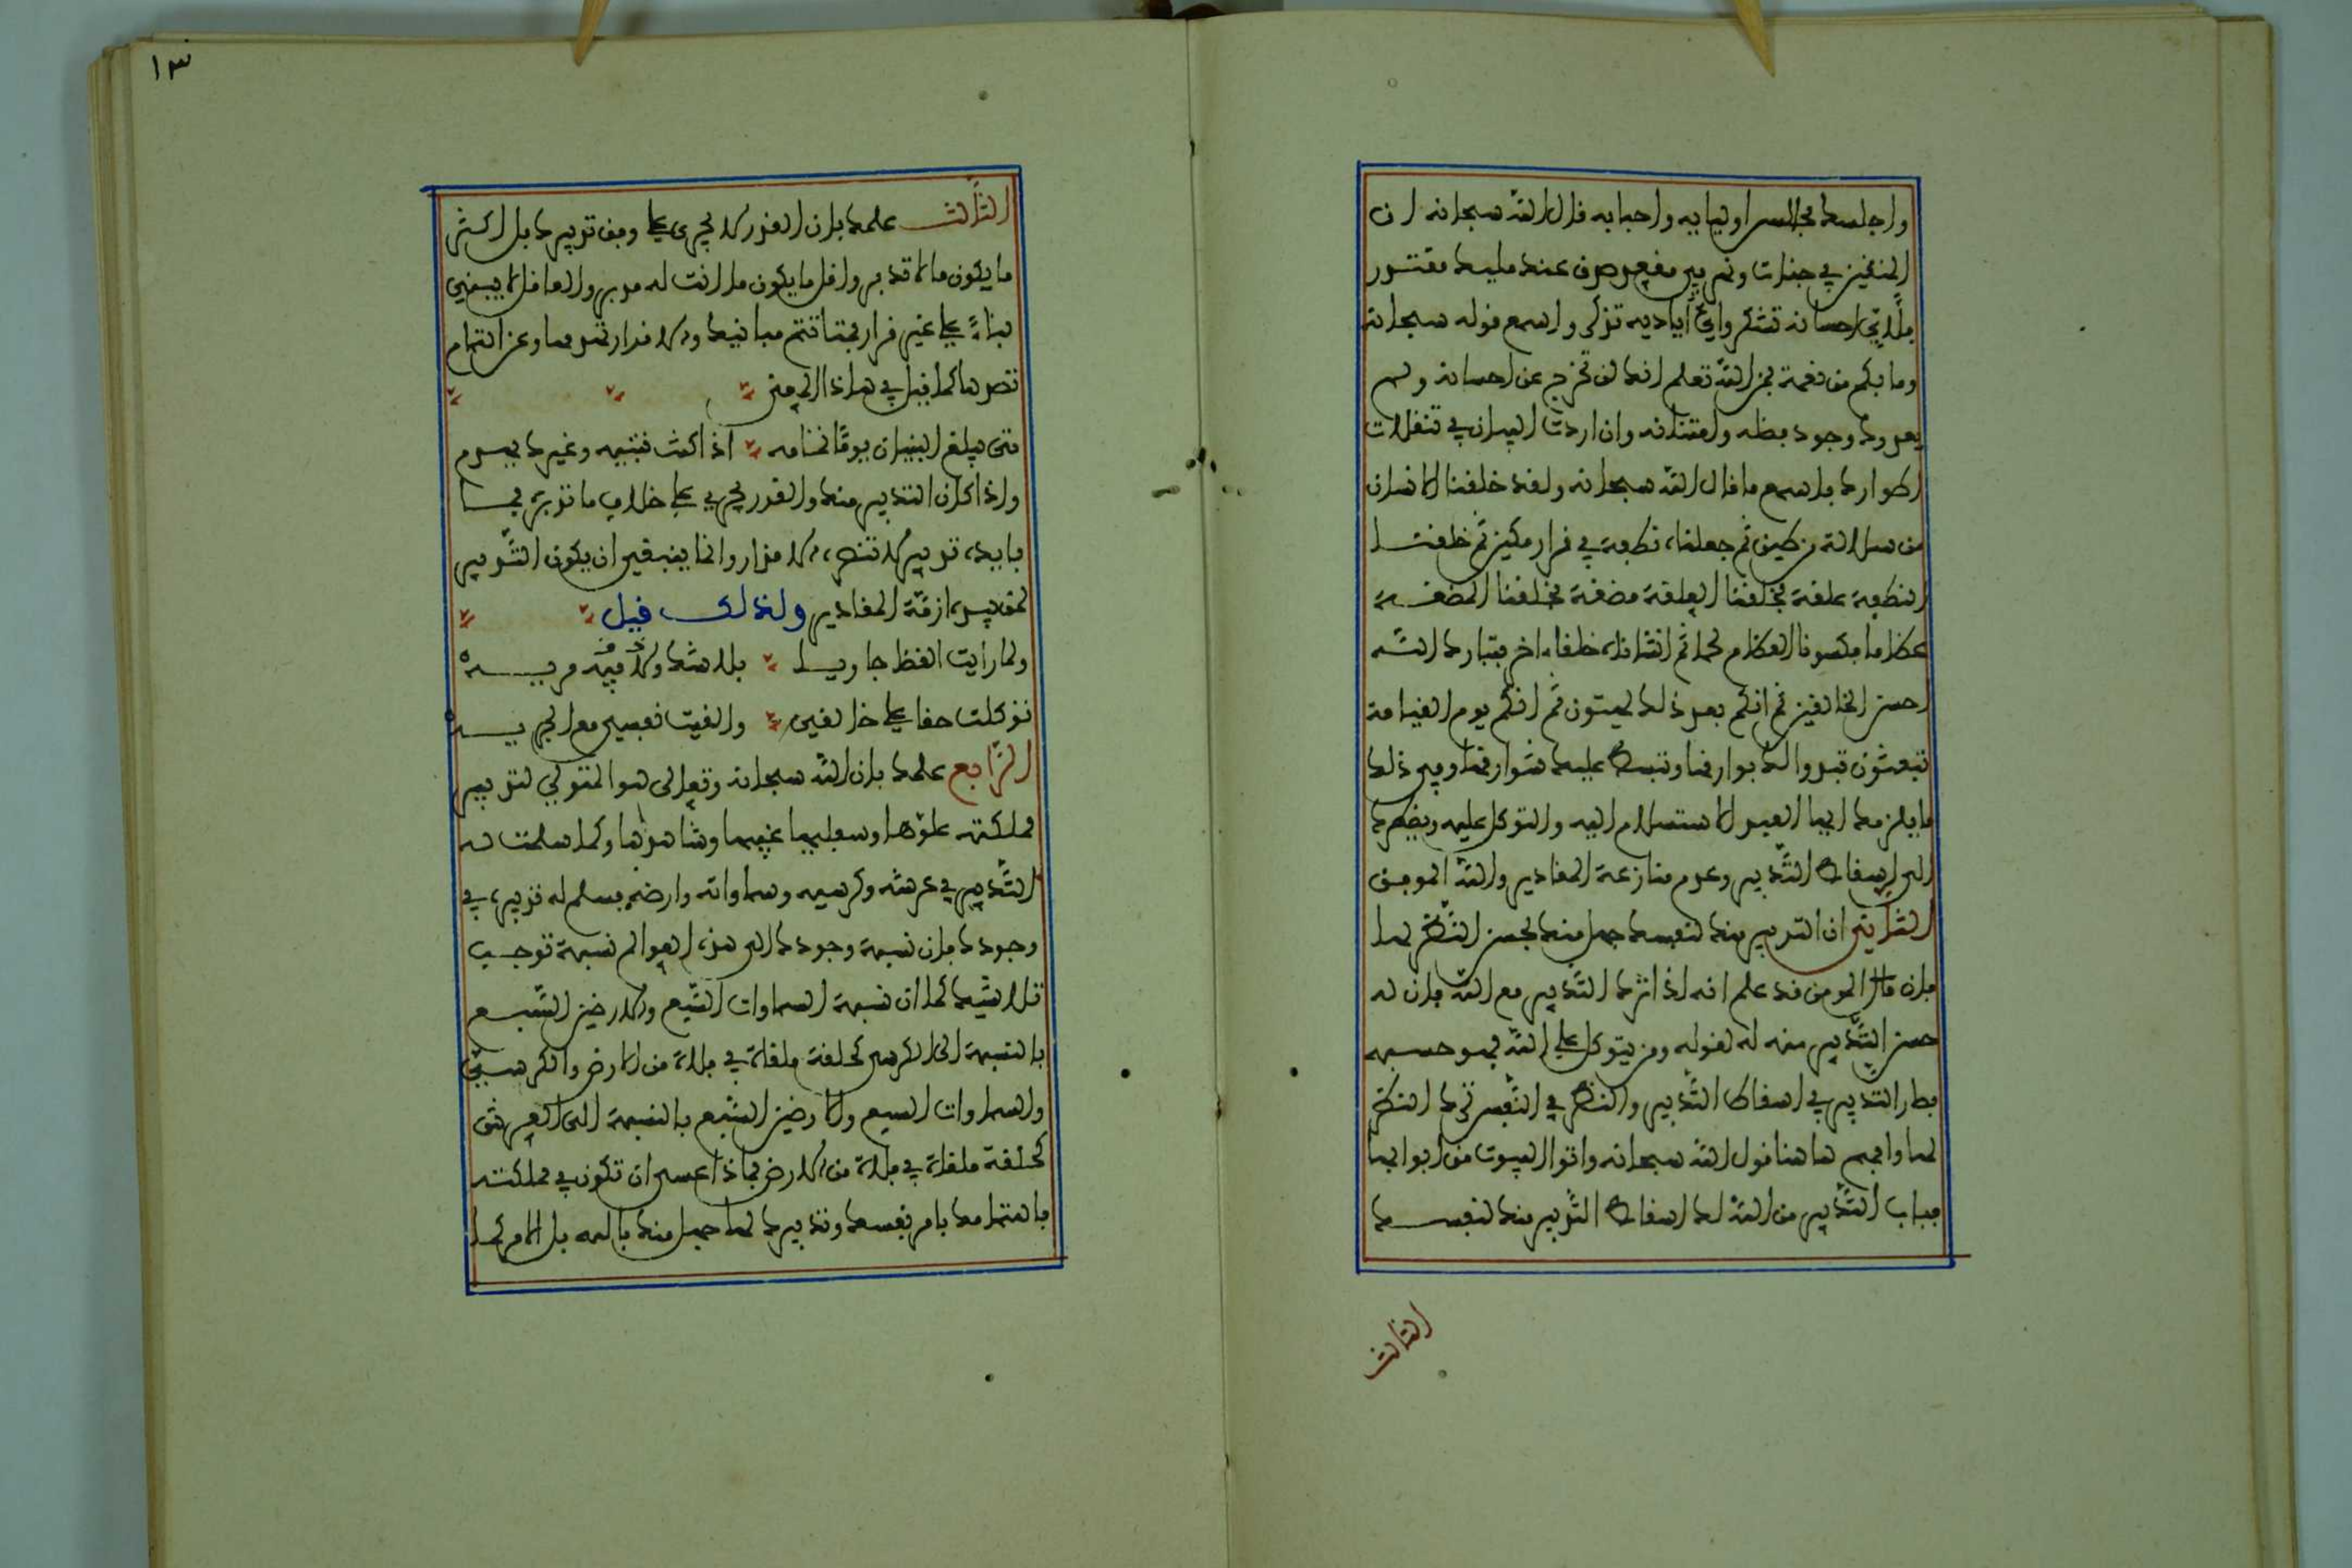 واجلسك مجالس اوليايه واحبابه قال الله سبحانه ان
المتقين في جنات ونهر في مقعد صدق عند مليك مقتدر
فلأي احسانه تشكر وأي أياديه تذكر واسمع قوله سبحانه
وما بكم من نعمة فمن الله تعلم انك لن تخرج عن احسانه ولن
يعدوك وجود فضله وامتنانه وان اردت البيان في تنقلات
اطوارك فاسمع ما قال الله سبحانه ولقد خلقنا الانسان
من سلالة من طين ثم جعلناه نطفة في قرار مكين ثم خلقنا
النطفة علقة فخلقنا العلقة مضغة فخلقنا المضغة
عظاما فكسونا العظام لحما ثم انشاناه خلقا اخر فتبارك الله
احسن الخالقين ثم انكم بعد ذلك لميتون ثم انكم يوم القيامة
تبعثون تبدو الك بوارقها وتبسط عليك شوارقها وفي ذلك
ما يلزمك ايها العبد الاستسلام اليه والتوكل عليه ويضطرك
الى اسقاط التدبير وعدم منازعة المقادير والله الموفق
الثاني ان التدبير منك لنفسك جهل منك بحسن النظر لها
فان قال المومن قد علم انه اذا ترك التدبير مع الله فان له
حسن التدبير منه له لقوله ومن يتوكل على الله فهو حسبه
فصار التدبير في اسقاط التدبير والنظر في النفس ترك النظر
لها وافهم ها هنا قول الله سبحانه واتوا البيوت من ابوابها
فباب التدبير من الله لك اسقاط التدبير منك لنفسك
الثالث
١٣
الثالث علمك بان القدر لا يجري على وفق تدبيرك بل اكثر
ما يكون ما لا تدبر واقل ما يكون ما انت له مدبر والعاقل لا يبني
بناءً على غير قرار فمتى تتم مبانيك والاقدار تهدمها وعن التمام
تصرها كما قيل في هاذا المعنى
متى يبلغ البنيان يوما تمامه اذا كنت تبنيه وغيرك يهدم
واذا كان التدبير منك والقدر يجري على خلاف ما تدبر فما
فايدة تدبير لا تنصره الاقدار وانما ينبغي ان يكون التدبير
لمن بيده ازمة المقادير ولذلك قيل
ولما رايت القضا جاريا بلا شك ولا فيه مريه
توكلت حقا على خالقي والقيت نفسي مع الجريه
الرابع علمك بان الله سبحانه وتعالى هو المتولي لتدبير
مملكته علوها وسفليها غيبها وشاهدها وكما سلمت له
التدبير في عرشه وكرسيه وسماواته وارضه فسلم له تدبيره في
وجودك فان نسبة وجودك الى هذه العوالم نسبة توجب
تلاشيك كما ان نسبة السماوات السبع والارضين السبع
بالنسبة الى الكرسي كحلقة ملقاة في فلاة من الارض والكرسي
والسماوات السبع والارضين السبع بالنسبة الى العرش
كحلقة ملقاة في فلاة من الارض فماذا عسى ان تكون في مملكته
فاهتمامك بامر نفسك وتدبيرك لها جهل منك بالله بل الامر كما